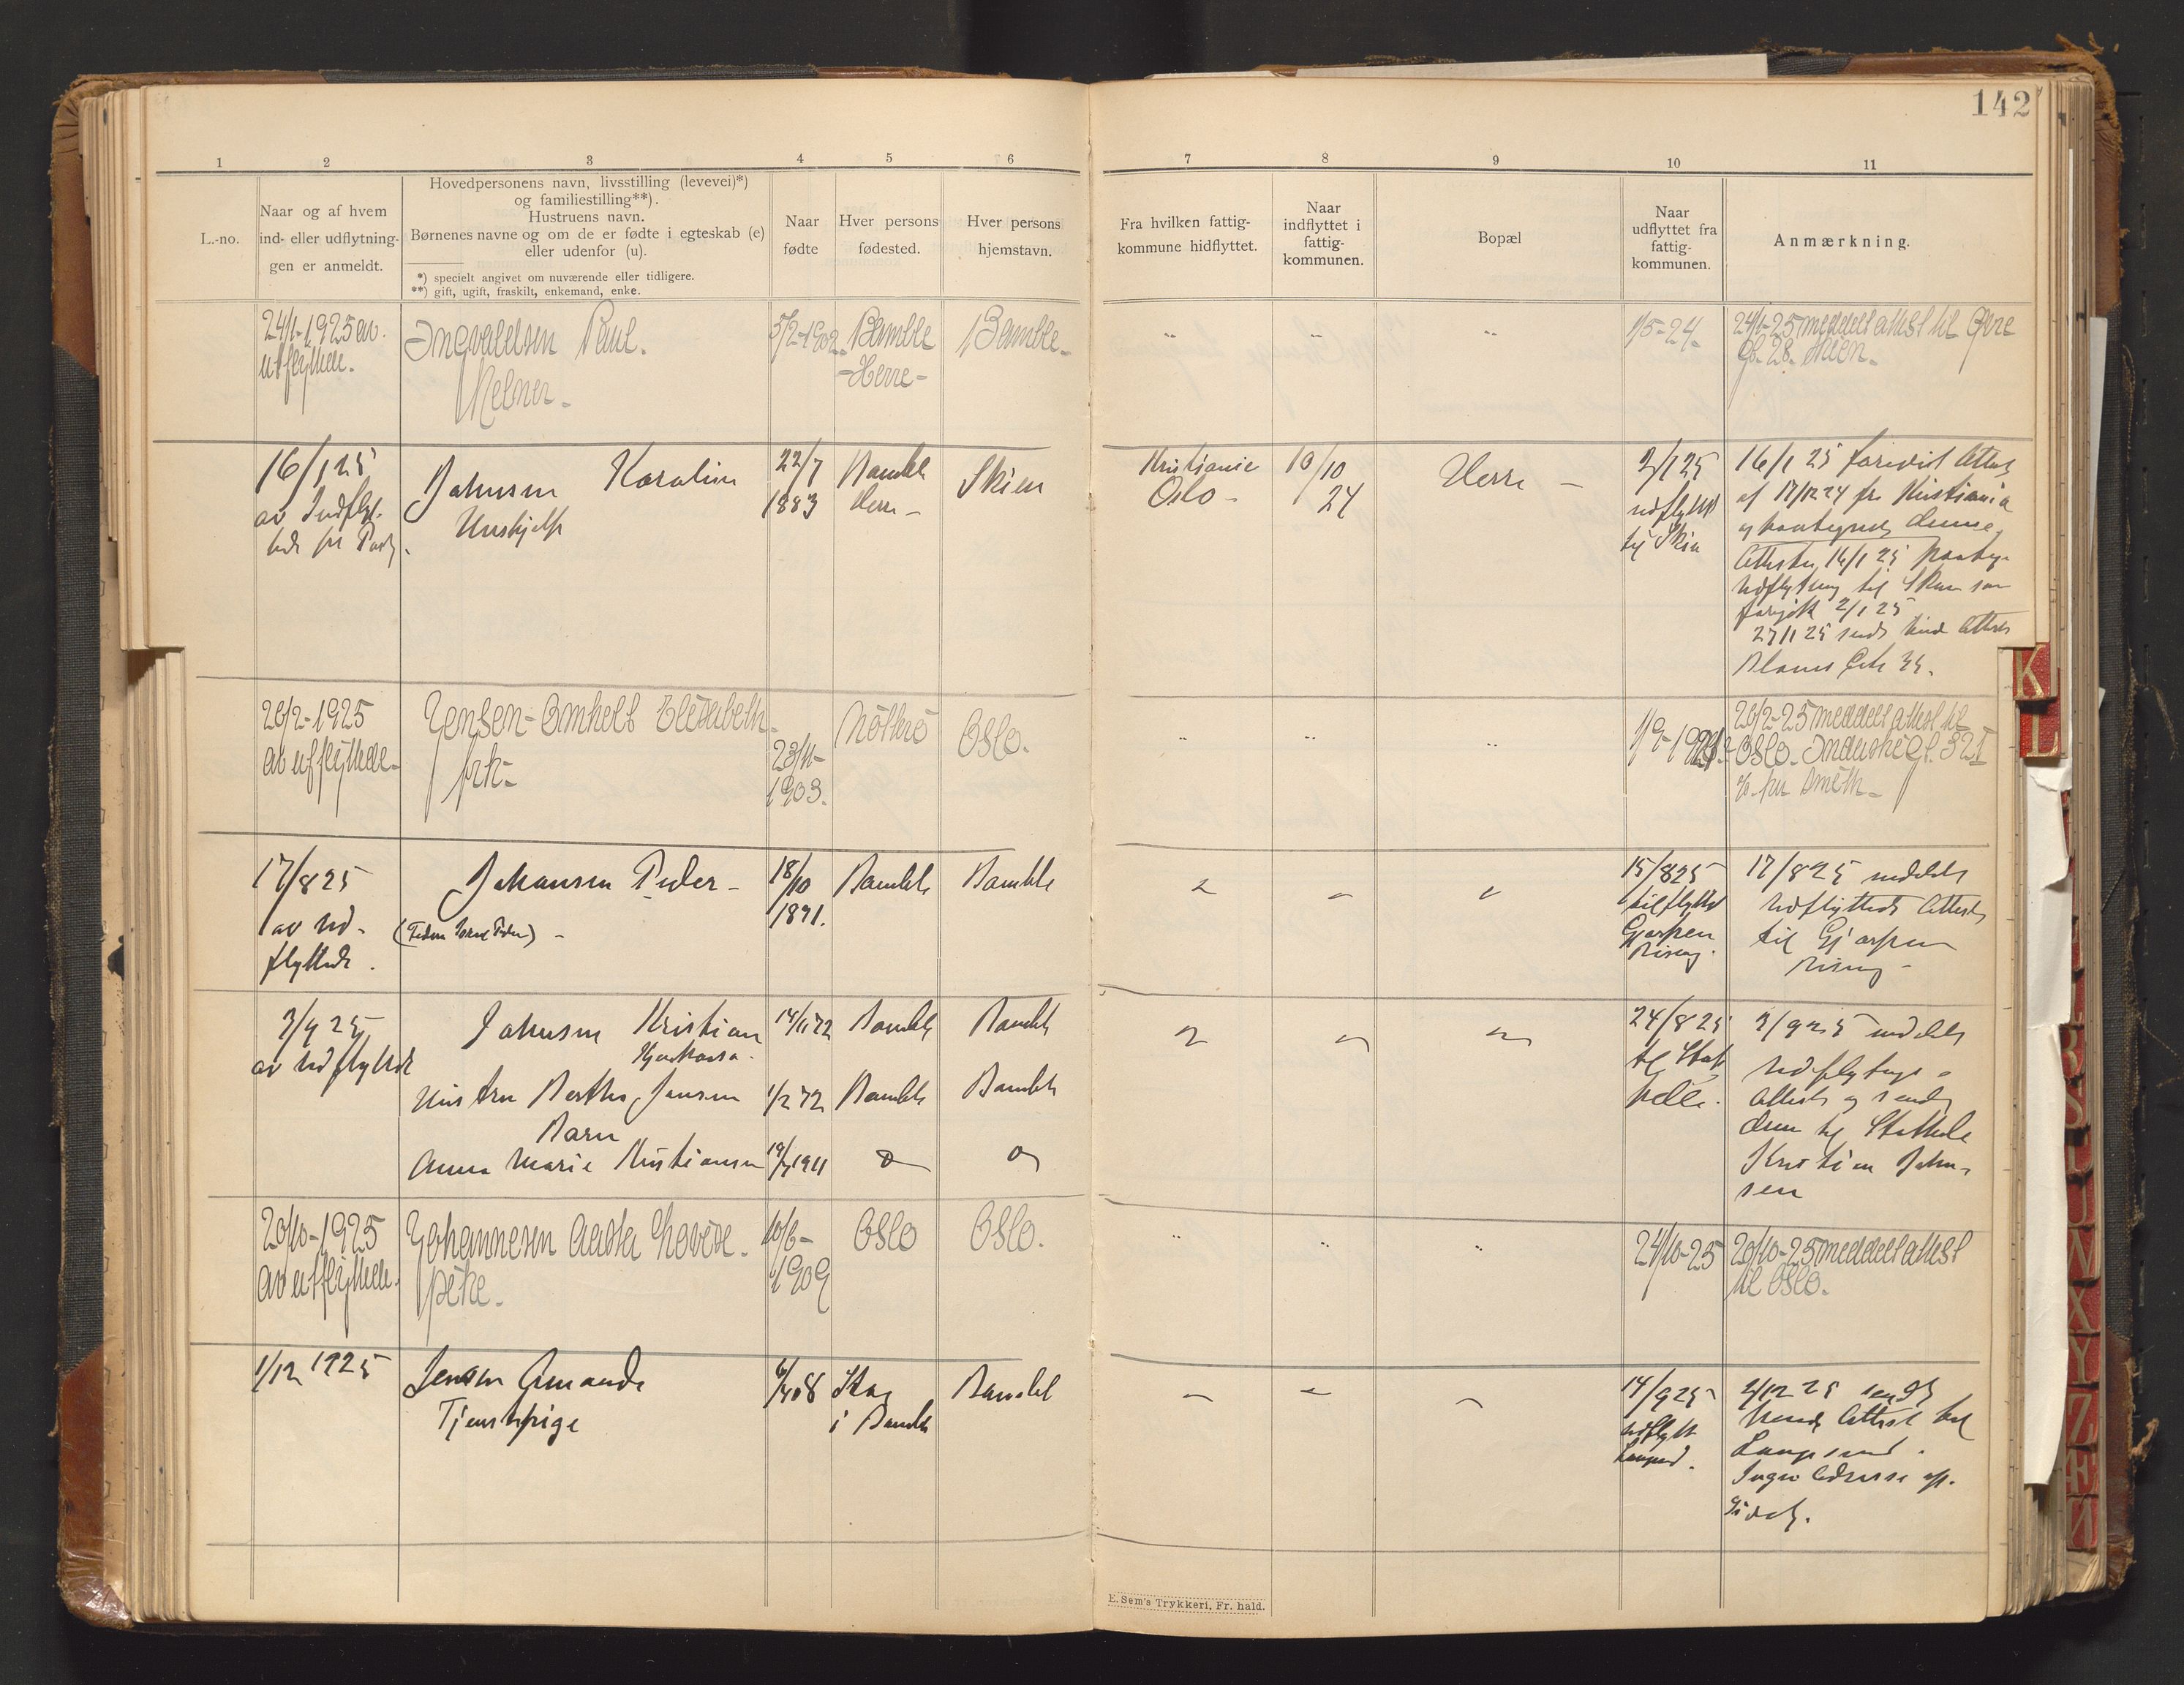 142
1 2 3 4 5 6 7 8 9 10 11
L.-no.
Naar og af hvem
ind- eller udflytnin-
gen er anmeldt.
Hovedpersonens navn, livsstilling (levevei)*)
og familiestilling**).
Hustruens navn.
Børnenes navne og om de er fødte i egteskab (e)
eller udenfor (u).
*) specielt angivet om nuværende eller tidligere.
**) gift, ugift, fraskilt, enkemand, enke.
Naar
fødte
Hver persons
fødested.
Hver persons
hjemstavn.
Fra hvilken fattig-
kommune hidflyttet.
Naar
indflyttet i
fattig-
kommunen.
Bopæl
Naar
udflyttet fra
fattig-
kommunen.
Anmærkning.
24/1-1925 av
utflyttede.
Ingvaldsen Paul.
5/2-1902
Bamble
-Herre-
Bamble-
1/5-24-
24/1-25 meddelt attest til Øvre
Skien-
16/1 25
av Indflyt-
Johnsen Karoline
Hushjelp
22/7
1883
Bamble
Herre -
Skien
Kristiania
Oslo -
10/10
24
Herre -
2/1 25
udflyttet
til Skien
16/1 25 forevist Attest
af 17/12 24 fra Kristiania
og paategnet denne
Attesten 16/1 25 paateg.
Udflytning til Skien som
foregik 2/1 25
27/1 25 sendt hende Attest
26/2-1925
av utflyttede-
Jensen-Omholt Elisabeth-
frk-
23/11-
1903.
Nøtterø
Oslo.
26/2-25 meddelt attest til
Oslo. Industrigt. 32I
c/o fru Smeth-
17/8 25
av ud-
flyttede.
Johansen Peder -
18/10
1891.
Bamble
Bamble
15/8 25
tilflyttet
Gjerpen
17/8 25 meddelt
Udflyttede Attest
til Gjerpen
3/9 25
av udflyttede
Johnsen Kristian
14/11 72
Bamble
Bamble
Hustru Berthe Jensen
1/2 72
Bamble
Bamble
Barn
Anna Marie Kristiansen
19/7 1911
24/8 25
til Stat
helle.
3/9 25 meddelt
Udflytnings-
Attest og sendt
dem til Stathelle
Kristian John-
sen
20/10-1925
av utflyttede.
Johannesen Aasta Lovise.
pike.
10/6-
1909
Oslo
Oslo.
24/10-25
20/10-25 meddelt attest
til Oslo.
1/12 1925
Jensen Amanda
Tjenstpige
i Bamble
Bamble
14/9 25
udflytt
2/12 25 sendt
hende Attest til
Langesund.
Ingen Adresse op-
givet.
E. Sem's Trykkeri, Fr. hald.
K
L
X
Y
Z
Æ